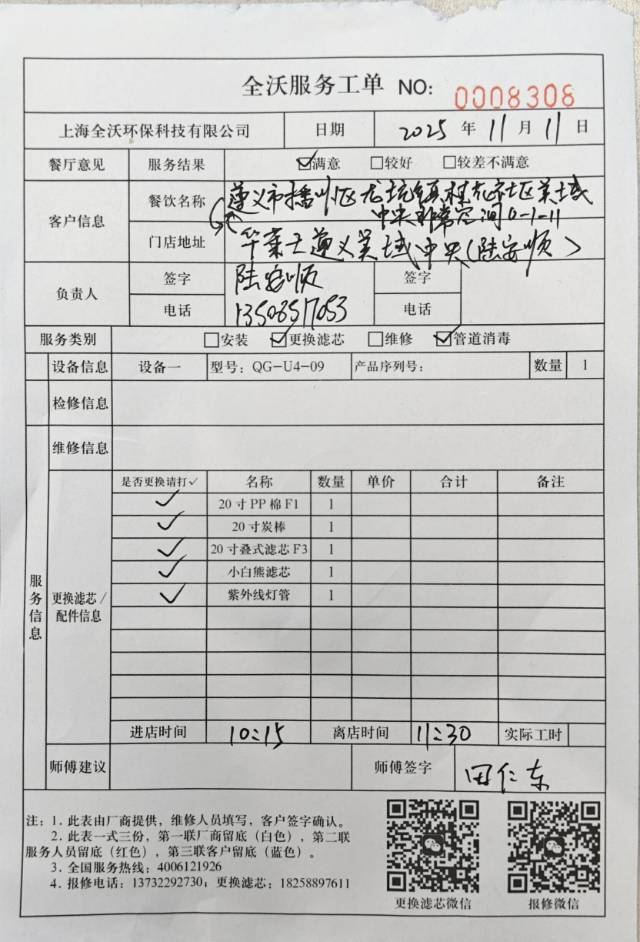 全沃服务工单 NO: 0008308
上海全沃环保科技有限公司 日期 2025 年 11 月 11 日
餐厅意见 服务结果 ☑满意 □较好 □较差不满意
客户信息 餐饮名称 遵义市播州区龙坑镇 社区吴域
中央 非常空间0-1-11
门店地址 华莱士遵义吴域中央(陆安顺)
负责人 签字 陆安顺 签字
电话 13508517053 电话
服务类别 □安装 ☑更换滤芯 □维修 ☑管道消毒
设备信息 设备一 型号: QG-U4-09 产品序列号: 数量 1
检修信息
服务信息 维修信息
更换滤芯/配件信息 是否更换请打✓ 名称 数量 单价 合计 备注
✓ 20寸PP棉F1 1
✓ 20寸炭棒 1
✓ 20寸叠式滤芯F3 1
✓ 小白熊滤芯 1
✓ 紫外线灯管 1
进店时间 10:15 离店时间 11:30 实际工时
师傅建议 师傅签字 田仁东
注: 1. 此表由厂商提供，维修人员填写，客户签字确认。
2. 此表一式三份，第一联厂商留底（白色），第二联
服务人员留底（红色），第三联客户留底（蓝色）。
3. 全国服务热线: 4006121926
4. 报修电话: 13732292730; 更换滤芯: 18258897611
更换滤芯微信 报修微信